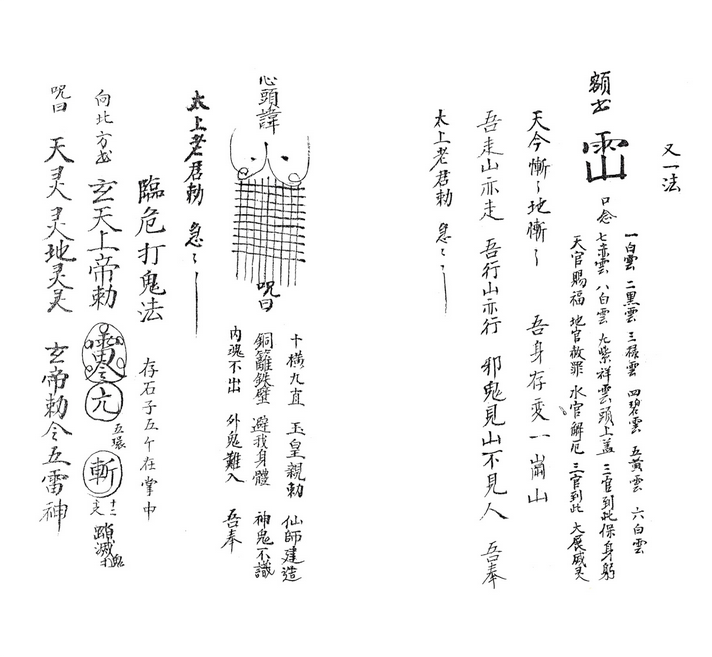 又一法
額出 雷山 口念
一白雲 二黑雲 三祿雲 四碧雲 五黃雲 六白雲
七赤雲 八白雲 九紫祥雲頭上蓋 三官到此保身躬
天官賜福 地官赦罪 水官解厄 三官到此 大展威灵
天今慚〻地慚〻 吾身存変一崗山
吾走山亦走 吾行山亦行 邪鬼見山不見人 吾奉
太上老君勅 急〻
心頭諱
咒曰
十橫九直 玉皇親勅 仙師建造
銅籬鉄壁 避我身體 神鬼不識
內魂不出 外鬼難入 吾奉
太上老君勅 急〻
臨危打鬼法 存石子五个在掌中
向北方 玄天上帝勅 五環 斬 十二
咒曰 天灵灵地灵灵 玄帝勅令五雷神